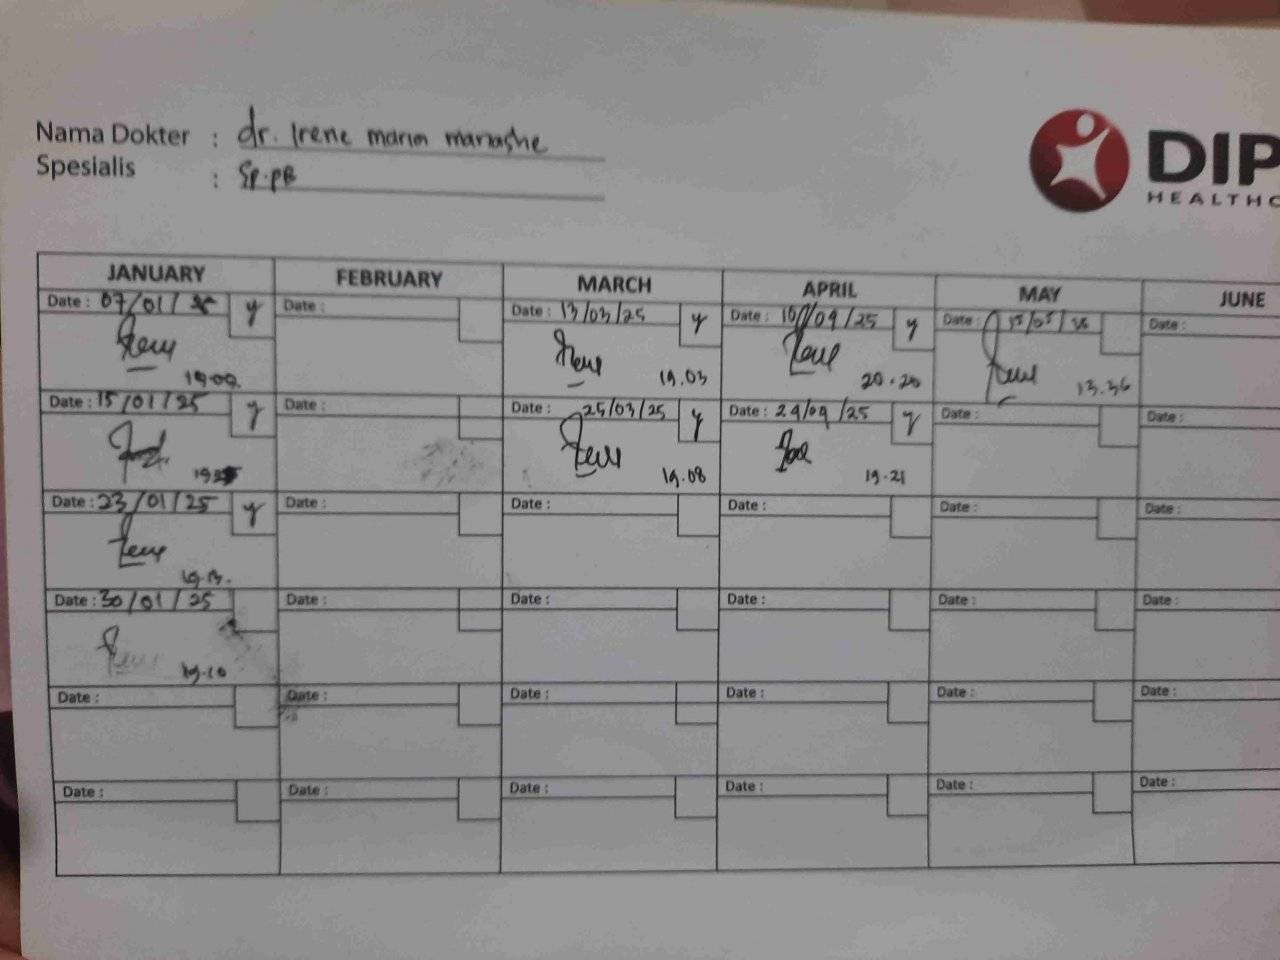 Nama Dokter : dr. Irene maria
Spesialis : Sp.PB
DIP
HEALTHC
JANUARY FEBRUARY MARCH APRIL MAY JUNE
Date : 07/01/ y Date : Date : 13/03/25 y Date : 10/04/25 y Date : 15/05/ Date :
19.00. 19.03 20.20 13.36
Date : 15/01/25 y Date : Date : 25/03/25 y Date : 24/04/25 y Date : Date :
19.08 19.21
Date : 23/01/25 y Date : Date : Date : Date : Date :
Date : 30/01/25 Date : Date : Date : Date : Date :
19.10
Date : Date : Date : Date : Date : Date :
Date : Date : Date : Date : Date : Date :